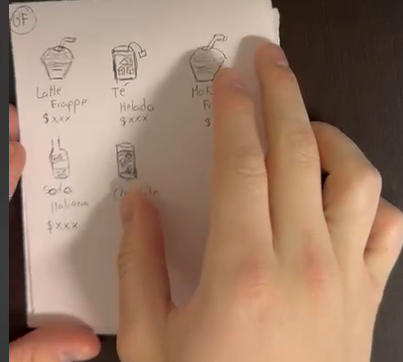 GF
Latte
Frappe
$xxx
Té
Helado
$xxx
$
Soda
Italiana
$xxx